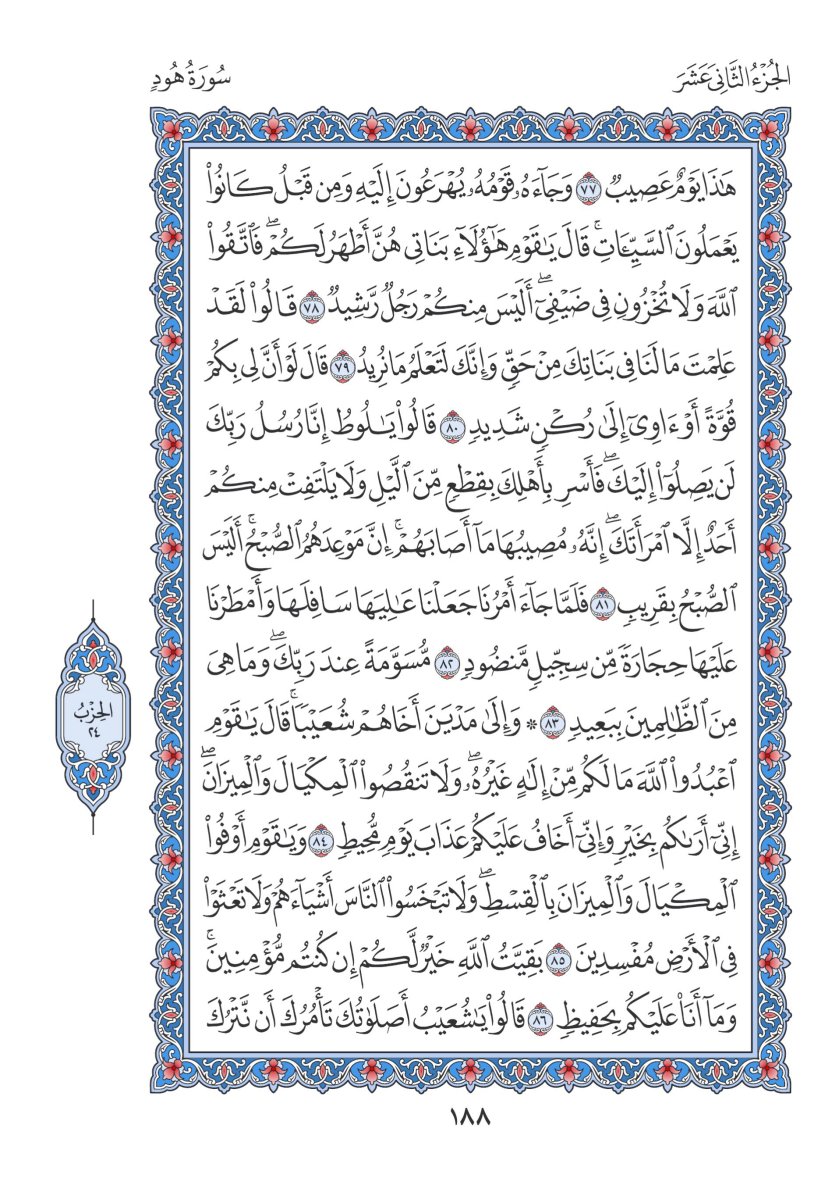 الجُزْءُ الثَّانِىَ عَشَرَ
سُورَةُ هُودٍ
هَٰذَا يَوۡمٌ عَصِيبٞ ٧٧ وَجَآءَهُۥ قَوۡمُهُۥ يُهۡرَعُونَ إِلَيۡهِ وَمِن قَبۡلُ كَانُواْ
يَعۡمَلُونَ ٱلسَّيِّـَٔاتِۚ قَالَ يَٰقَوۡمِ هَٰٓؤُلَآءِ بَنَاتِي هُنَّ أَطۡهَرُ لَكُمۡۖ فَٱتَّقُواْ
ٱللَّهَ وَلَا تُخۡزُونِ فِي ضَيۡفِيٓۖ أَلَيۡسَ مِنكُمۡ رَجُلٞ رَّشِيدٞ ٧٨ قَالُواْ لَقَدۡ
عَلِمۡتَ مَا لَنَا فِي بَنَاتِكَ مِنۡ حَقّٖ وَإِنَّكَ لَتَعۡلَمُ مَا نُرِيدُ ٧٩ قَالَ لَوۡ أَنَّ لِي بِكُمۡ
قُوَّةً أَوۡ ءَاوِيٓ إِلَىٰ رُكۡنٖ شَدِيدٖ ٨٠ قَالُواْ يَٰلُوطُ إِنَّا رُسُلُ رَبِّكَ
لَن يَصِلُوٓاْ إِلَيۡكَۖ فَأَسۡرِ بِأَهۡلِكَ بِقِطۡعٖ مِّنَ ٱلَّيۡلِ وَلَا يَلۡتَفِتۡ مِنكُمۡ
أَحَدٌ إِلَّا ٱمۡرَأَتَكَۖ إِنَّهُۥ مُصِيبُهَا مَآ أَصَابَهُمۡۚ إِنَّ مَوۡعِدَهُمُ ٱلصُّبۡحُۚ أَلَيۡسَ
ٱلصُّبۡحُ بِقَرِيبٖ ٨١ فَلَمَّا جَآءَ أَمۡرُنَا جَعَلۡنَا عَٰلِيَهَا سَافِلَهَا وَأَمۡطَرۡنَا
عَلَيۡهَا حِجَارَةٗ مِّن سِجِّيلٖ مَّنضُودٖ ٨٢ مُّسَوَّمَةً عِندَ رَبِّكَۖ وَمَا هِيَ
مِنَ ٱلظَّٰلِمِينَ بِبَعِيدٖ ٨٣ * وَإِلَىٰ مَدۡيَنَ أَخَاهُمۡ شُعَيۡبٗاۚ قَالَ يَٰقَوۡمِ
ٱعۡبُدُواْ ٱللَّهَ مَا لَكُم مِّنۡ إِلَٰهٍ غَيۡرُهُۥۖ وَلَا تَنقُصُواْ ٱلۡمِكۡيَالَ وَٱلۡمِيزَانَۖ
إِنِّيٓ أَرَىٰكُم بِخَيۡرٖ وَإِنِّيٓ أَخَافُ عَلَيۡكُمۡ عَذَابَ يَوۡمٖ مُّحِيطٖ ٨٤ وَيَٰقَوۡمِ أَوۡفُواْ
ٱلۡمِكۡيَالَ وَٱلۡمِيزَانَ بِٱلۡقِسۡطِۖ وَلَا تَبۡخَسُواْ ٱلنَّاسَ أَشۡيَآءَهُمۡ وَلَا تَعۡثَوۡاْ
فِي ٱلۡأَرۡضِ مُفۡسِدِينَ ٨٥ بَقِيَّتُ ٱللَّهِ خَيۡرٞ لَّكُمۡ إِن كُنتُم مُّؤۡمِنِينَۚ
وَمَآ أَنَا۠ عَلَيۡكُم بِحَفِيظٖ ٨٦ قَالُواْ يَٰشُعَيۡبُ أَصَلَوٰتُكَ تَأۡمُرُكَ أَن نَّتۡرُكَ
الحِزْبُ
٢٤
١٨٨